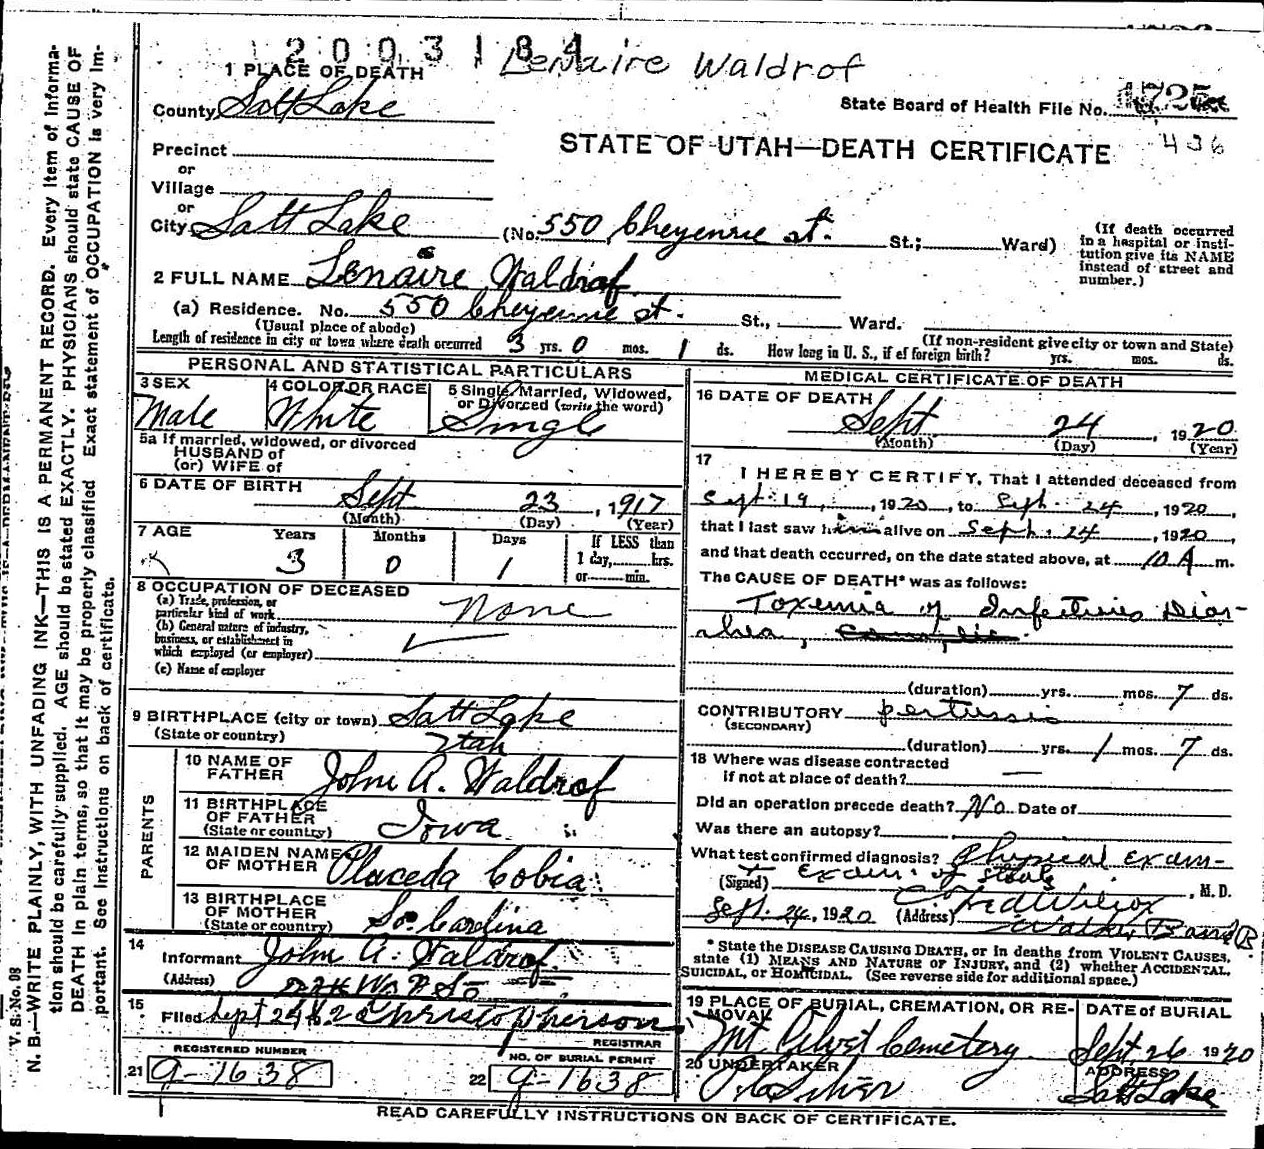 2003184 Lenaire Waldrof
1 PLACE OF DEATH
County Salt Lake
State Board of Health File No. 1725
436
Precinct
or
Village
or
STATE OF UTAH—DEATH CERTIFICATE
City Salt Lake (No. 550 Cheyenne st. St.; Ward)
(If death occurred in a hospital or insti-
tution give its NAME
instead of street and
number.)
2 FULL NAME Lenaire Waldrof
(a) Residence. No. 550 Cheyenne st. St., Ward.
(Usual place of abode) (If non-resident give city or town and State)
Length of residence in city or town where death occurred 3 yrs. 0 mos. 1 ds. How long in U. S., if of foreign birth? yrs. mos. ds.
PERSONAL AND STATISTICAL PARTICULARS
3 SEX
Male
4 COLOR OR RACE
White
5 Single, Married, Widowed,
or Divorced (write the word)
Single
5a If married, widowed, or divorced
HUSBAND of
(or) WIFE of
6 DATE OF BIRTH Sept 23, 1917
(Month) (Day) (Year)
7 AGE Years Months Days If LESS than
1 day, hrs.
or min.
3 0 1
8 OCCUPATION OF DECEASED
(a) Trade, profession, or
particular kind of work None
(b) General nature of industry,
business, or establishment in
which employed (or employer)
(c) Name of employer
9 BIRTHPLACE (city or town) Salt Lake
(State or country) Utah
PARENTS
10 NAME OF
FATHER John A. Waldrof
11 BIRTHPLACE
OF FATHER
(State or country) Iowa
12 MAIDEN NAME
OF MOTHER Placeda Cobia
13 BIRTHPLACE
OF MOTHER
(State or country) So. Carolina
14
Informant John A. Waldrof
(Address)
15
Filed Sept 24 Christopherson
REGISTRAR
REGISTERED NUMBER
21 9-1638
NO. OF BURIAL PERMIT
22 9-1638
MEDICAL CERTIFICATE OF DEATH
16 DATE OF DEATH
Sept 24, 1920
(Month) (Day) (Year)
17
I HEREBY CERTIFY, That I attended deceased from
Sept. 19, 1920, to Sept. 24, 1920,
that I last saw him alive on Sept. 24, 1920,
and that death occurred, on the date stated above, at 10 A m.
The CAUSE OF DEATH* was as follows:
Toxemia of Infectious Diar-
rhea,
(duration) yrs. mos. 7 ds.
CONTRIBUTORY pertussis
(SECONDARY)
(duration) yrs. 1 mos. 7 ds.
18 Where was disease contracted
if not at place of death?
Did an operation precede death? No Date of
Was there an autopsy?
What test confirmed diagnosis? Physical Exam-
Exam. of stools
(Signed) C. Fred Wilcox, M. D.
Sept. 24, 1920 (Address) Walker Bank B
* State the DISEASE CAUSING DEATH, or in deaths from VIOLENT CAUSES,
state (1) MEANS AND NATURE OF INJURY, and (2) whether ACCIDENTAL,
SUICIDAL, or HOMICIDAL. (See reverse side for additional space.)
19 PLACE OF BURIAL, CREMATION, OR RE-
MOVAL
Mt Olivet Cemetery
DATE of BURIAL
Sept. 26 1920
20 UNDERTAKER
ADDRESS
Salt Lake
READ CAREFULLY INSTRUCTIONS ON BACK OF CERTIFICATE.
V. S. No. 08
N. B.—WRITE PLAINLY, WITH UNFADING INK—THIS IS A PERMANENT RECORD. Every item of informa-
tion should be carefully supplied. AGE should be stated EXACTLY. PHYSICIANS should state CAUSE OF
DEATH in plain terms, so that it may be properly classified. Exact statement of OCCUPATION is very im-
portant. See Instructions on back of certificate.